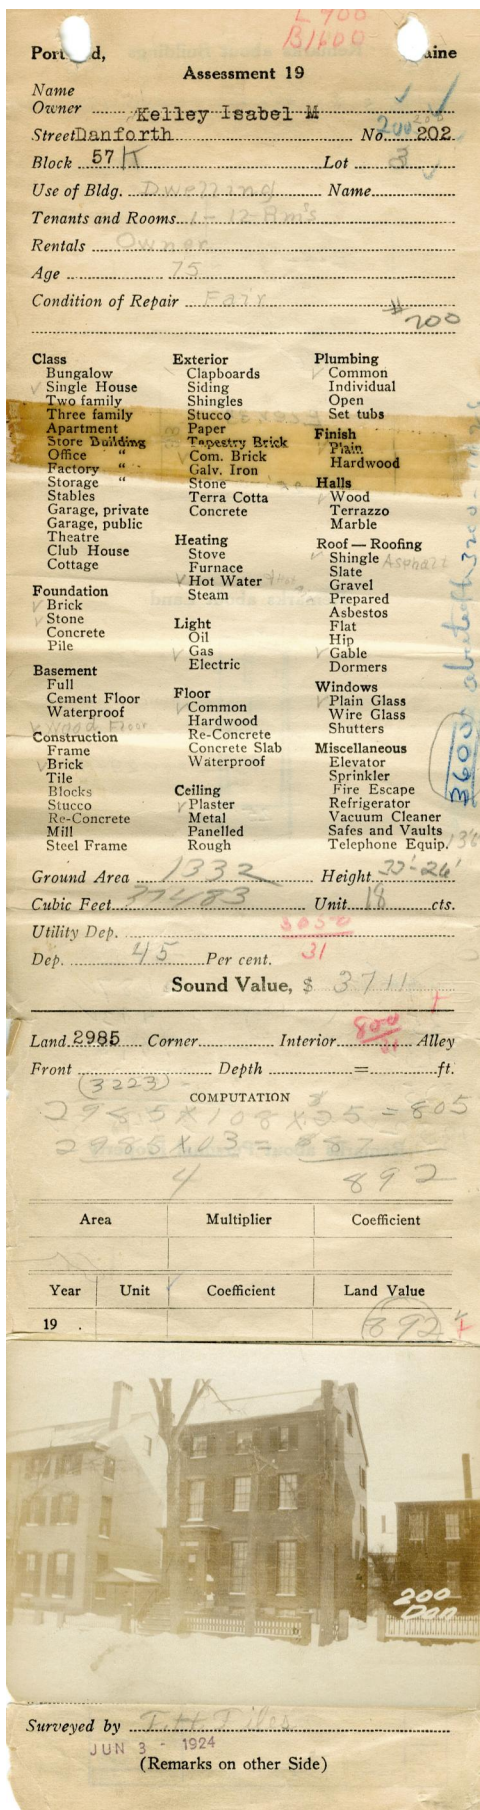 L 700
B1600
Portland, Maine
Assessment 19
Name
Owner Kelley Isabel M
Street Danforth No. 200 202
Block 57 K Lot 3
Use of Bldg. Dwelling Name
Tenants and Rooms 1-12-Rm's
Rentals Owner
Age 75
Condition of Repair Fair
#200
Class
Bungalow
Single House
Two family
Three family
Apartment
Store Building
Office "
Factory "
Storage "
Stables
Garage, private
Garage, public
Theatre
Club House
Cottage
Foundation
Brick
Stone
Concrete
Pile
Basement
Full
Cement Floor
Waterproof
Wood Floor
Construction
Frame
Brick
Tile
Blocks
Stucco
Re-Concrete
Mill
Steel Frame
Exterior
Clapboards
Siding
Shingles
Stucco
Paper
Tapestry Brick
Com. Brick
Galv. Iron
Stone
Terra Cotta
Concrete
Heating
Stove
Furnace
Hot Water
Steam
Light
Oil
Gas
Electric
Floor
Common
Hardwood
Re-Concrete
Concrete Slab
Waterproof
Ceiling
Plaster
Metal
Panelled
Rough
Plumbing
Common
Individual
Open
Set tubs
Finish
Plain
Hardwood
Halls
Wood
Terrazzo
Marble
Roof — Roofing
Shingle Asphalt
Slate
Gravel
Prepared
Asbestos
Flat
Hip
Gable
Dormers
Windows
Plain Glass
Wire Glass
Shutters
Miscellaneous
Elevator
Sprinkler
Fire Escape
Refrigerator
Vacuum Cleaner
Safes and Vaults
Telephone Equip.
3600
Ground Area 1332 Height
Cubic Feet 37483 Unit 18 cts.
Utility Dep. 3050
Dep. 45 Per cent. 31
Sound Value, $ 3711
Land 2985 Corner Interior 800 Alley
Front Depth = ft.
(3223)
COMPUTATION
2985 X 108 X 25 = 805
2985 X 03 = 887
4 892
Area Multiplier Coefficient
Year Unit Coefficient Land Value
19 892
200
Dan
Surveyed by
JUN 3 - 1924
(Remarks on other Side)